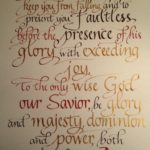 keep you from falling and to
present you faultless
before the presence of his
glory with exceeding
joy,
to the only wise God
our Savior, be glory
and majesty, dominion
and power, both